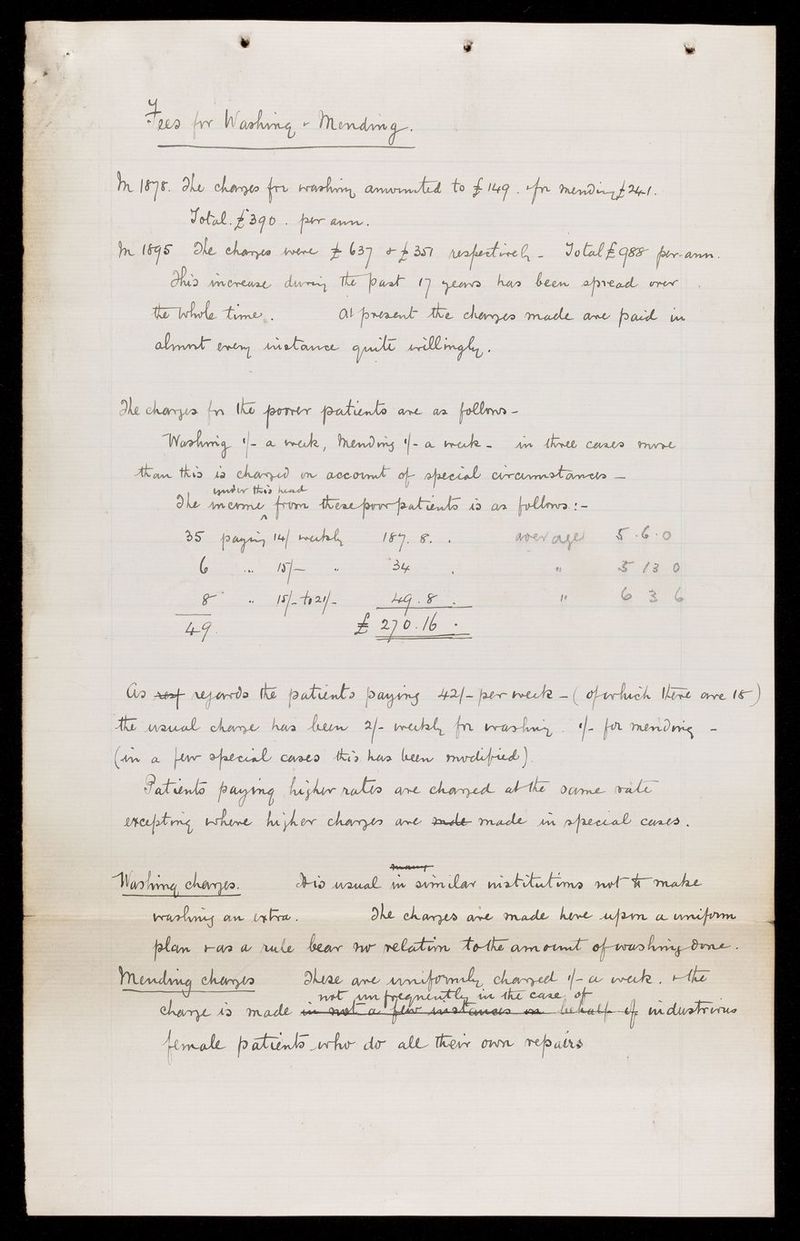 Fees for Washing & Mending.
In 1878. The charges for washing amounted to £149. & for mending £241.
Total. £390. per ann.
In 1895 The charges were £637 & £351 respectively - Total £988 per ann.
This increase during the past 17 years has been spread over
the whole time. At present the charges made are paid in
almost every instance quite willingly.
The charges for the poorer patients are as follows -
Washing 1/- a week, Mending 1/- a week - in three cases more
than this is charged on account of special circumstances -
under this head
The income from these poor patients is as follows :-
35 paying 14/ weekly 187. 8. . average 5.6.0
6 " 15/- " 34 . " 5 13 0
8 " 15/- to 21/- 49.8. " 6 3 6
49. £270.16.
As regards the patients paying 42/- per week - (of which there are 18)
the usual charge has been 2/- weekly for washing. 1/- for mending -
(in a few special cases this has been modified).
Patients paying higher rates are charged at the same rate
excepting where higher charges are made made in special cases.
many
Washing charges. It is usual in similar institutions not to make
washing an extra. The charges are made here upon a uniform
plan & as a rule bear no relation to the amount of washing done.
Mending charges These are uniformly charged 1/- a week. & the
not unfrequently in the case of
charge is made in not a few instances on behalf of industrious
female patients who do all their own repairs